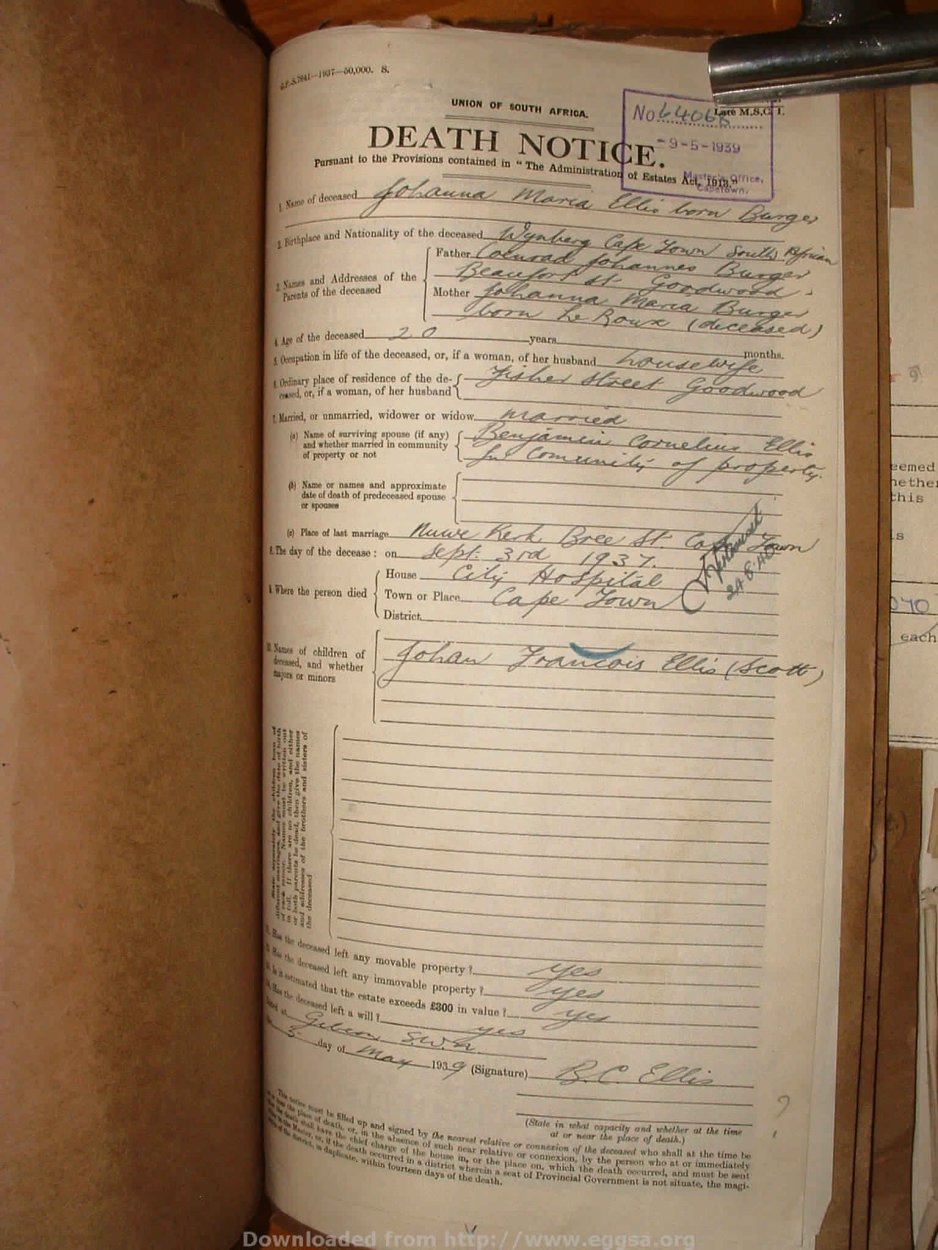 G.P.-S.7841—1937—50,000. S.
UNION OF SOUTH AFRICA.
Late M.S.C. 1.
No 64068
-9-5-1939
Master's Office,
Capetown.
DEATH NOTICE.
Pursuant to the Provisions contained in "The Administration of Estates Act, 1913."
1. Name of deceased Johanna Maria Ellis born Burger
2. Birthplace and Nationality of the deceased Wynberg Cape Town South African
3. Names and Addresses of the Parents of the deceased
Father Coenrad Johannes Burger
Beaufort St. Goodwood
Mother Johanna Maria Burger
born Le Roux (deceased)
4. Age of the deceased 20 years months.
5. Occupation in life of the deceased, or, if a woman, of her husband housewife
6. Ordinary place of residence of the deceased, or, if a woman, of her husband Fisher Street Goodwood
7. Married, or unmarried, widower or widow married
(a) Name of surviving spouse (if any) and whether married in community of property or not
Benjamin Cornelius Ellis
In Comunity of property.
(b) Name or names and approximate date of death of predeceased spouse or spouses
(c) Place of last marriage Nuwe Kerk Bree St. Cape Town
8. The day of the decease: on Sept. 3rd 1937.
9. Where the person died
House City Hospital
Town or Place Cape Town
District
24.6.40
10. Names of children of deceased, and whether majors or minors
Johan Francois Ellis (Scott)
State separately the children born of
different marriages, and give the date of birth
of each minor. Names must be written out
in full. If there are no children, and either
or both parents be dead, then give the names
and addresses of the brothers and sisters of
the deceased
11. Has the deceased left any movable property? yes
12. Has the deceased left any immovable property? yes
13. Is it estimated that the estate exceeds £300 in value? yes
14. Has the deceased left a will? yes
Dated at Gibeon S.W.A.
5 day of May 1939 (Signature) B.C Ellis
(State in what capacity and whether at the time
at or near the place of death.)
This notice must be filled up and signed by the nearest relative or connexion of the deceased who shall at the time be
at or near the place of death, or, in the absence of such near relative or connexion, by the person who at or immediately
after the death shall have the chief charge of the house in, or the place on, which the death occurred, and must be sent
to the Master, or, if the death occurred in a district wherein a seat of Provincial Government is not situate, the magi-
of the district, in duplicate, within fourteen days of the death.
each
this
Downloaded from http://www.eggsa.org